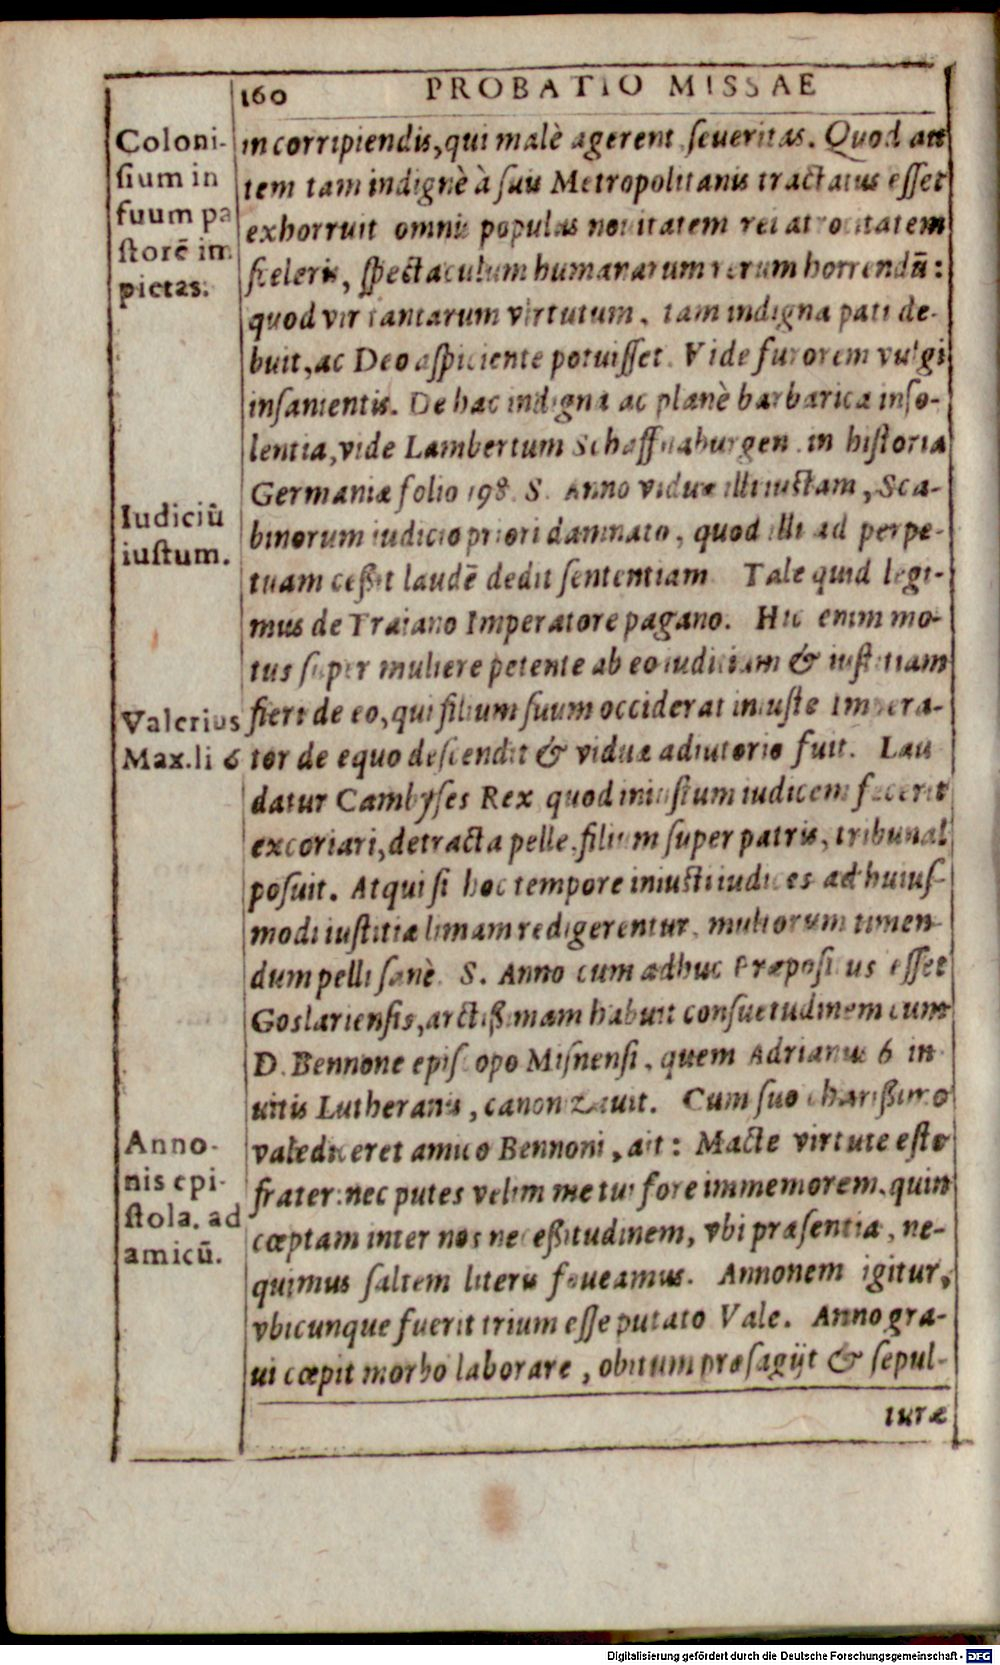 160 PROBATIO MISSAE
Coloni-
sium in
suum pa
storē im
pietas.
in corripiendis, qui malè agerent seueritas. Quod au
tem tam indignè à suis Metropolitanis tractatus esset
exhorruit omnis populus nouitatem rei atrocitatem
sceleris, spectaculum humanarum rerum horrendū:
quod vir tantarum virtutum, tam indigna pati de-
buit, ac Deo aspiciente potuisset. Vide furorem vulgi
insanientis. De hac indigna ac planè barbarica inso-
lentia, vide Lambertum Schaffnaburgen. in historia
Germaniæ folio 198. S. Anno viduæ illi iustam, Sca-
Iudiciū
iustum.
binorum iudicio priori damnato, quod illi ad perpe-
tuam ceßit laudē dedit sententiam Tale quid legi-
mus de Traiano Imperatore pagano. Hic enim mo-
tus super muliere petente ab eo iudicium & iustitiam
Valerius
Max.li 6
fieri de eo, qui filium suum occiderat iniuste Impera-
tor de equo descendit & viduæ adiutorio fuit. Lau
datur Cambyses Rex quod iniustum iudicem fecerit
excoriari, detracta pelle, filium super patris, tribunal
posuit. Atqui si hoc tempore iniusti iudices ad huius-
modi iustitiæ limam redigerentur, multorum timen-
dum pelli sanè. S. Anno cum adhuc Præpositus esset
Goslariensis, arctißimam habuit consuetudinem cum
D. Bennone episcopo Misnensi, quem Adrianus 6 in
uitis Lutheranis, canonizauit. Cum suo charißimo
Anno-
nis epi-
stola. ad
amicū.
valediceret amico Bennoni, ait: Macte virtute esto
frater: nec putes velim me tui fore immemorem, quin
cœptam inter nos neceßitudinem, vbi præsentia, ne-
quimus saltem literis foueamus. Annonem igitur,
vbicunque fuerit trium esse putato Vale. Anno gra-
ui cœpit morbo laborare, obitum præsagijt & sepul-
turæ
Digitalisierung gefördert durch die Deutsche Forschungsgemeinschaft - DFG